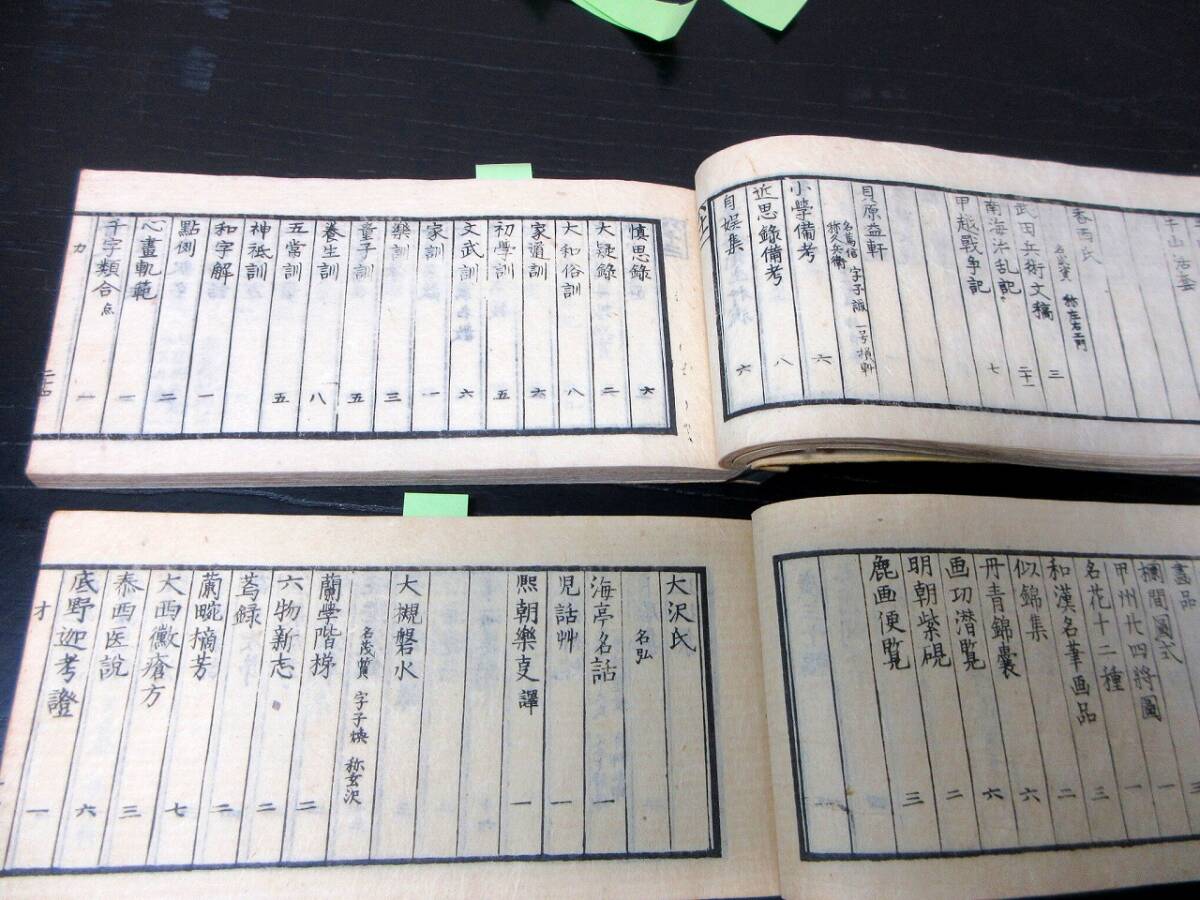 春画氏
武田兵術文稿 三
南海治乱記 二十一
甲越戰争記 七
貝原益軒
名篤信 字子誠 一号損軒
称久兵衛
小學備考 六
近思錄備考 八
自娯集 六
慎思錄 六
大疑錄 二
大和俗訓 八
家道訓 六
初學訓 五
文武訓 六
家訓 一
樂訓 三
童子訓 五
養生訓 八
五常訓 五
神祗訓
和字解 一
點例 二
心畫軌範 一
千字類合 点 一
カ
二十四
畵品 三
欄間圖式 三
甲州廿四將圖 一
名花十二種 三
和漢名筆画品 二
似錦集 六
丹青錦囊 六
画功潜覧 二
明朝紫硯 三
麁画便覧
大沢氏
名弘
海亭名話 一
児話艸 一
熈朝樂叓譯 一
大槻磐水
名茂質 字子煥 称玄沢
蘭學階梯 二
六物新志 二
蔫録 二
蘭畹摘芳 二
大西黴瘡方 七
泰西医説 三
底野迦考證 六
オ 一